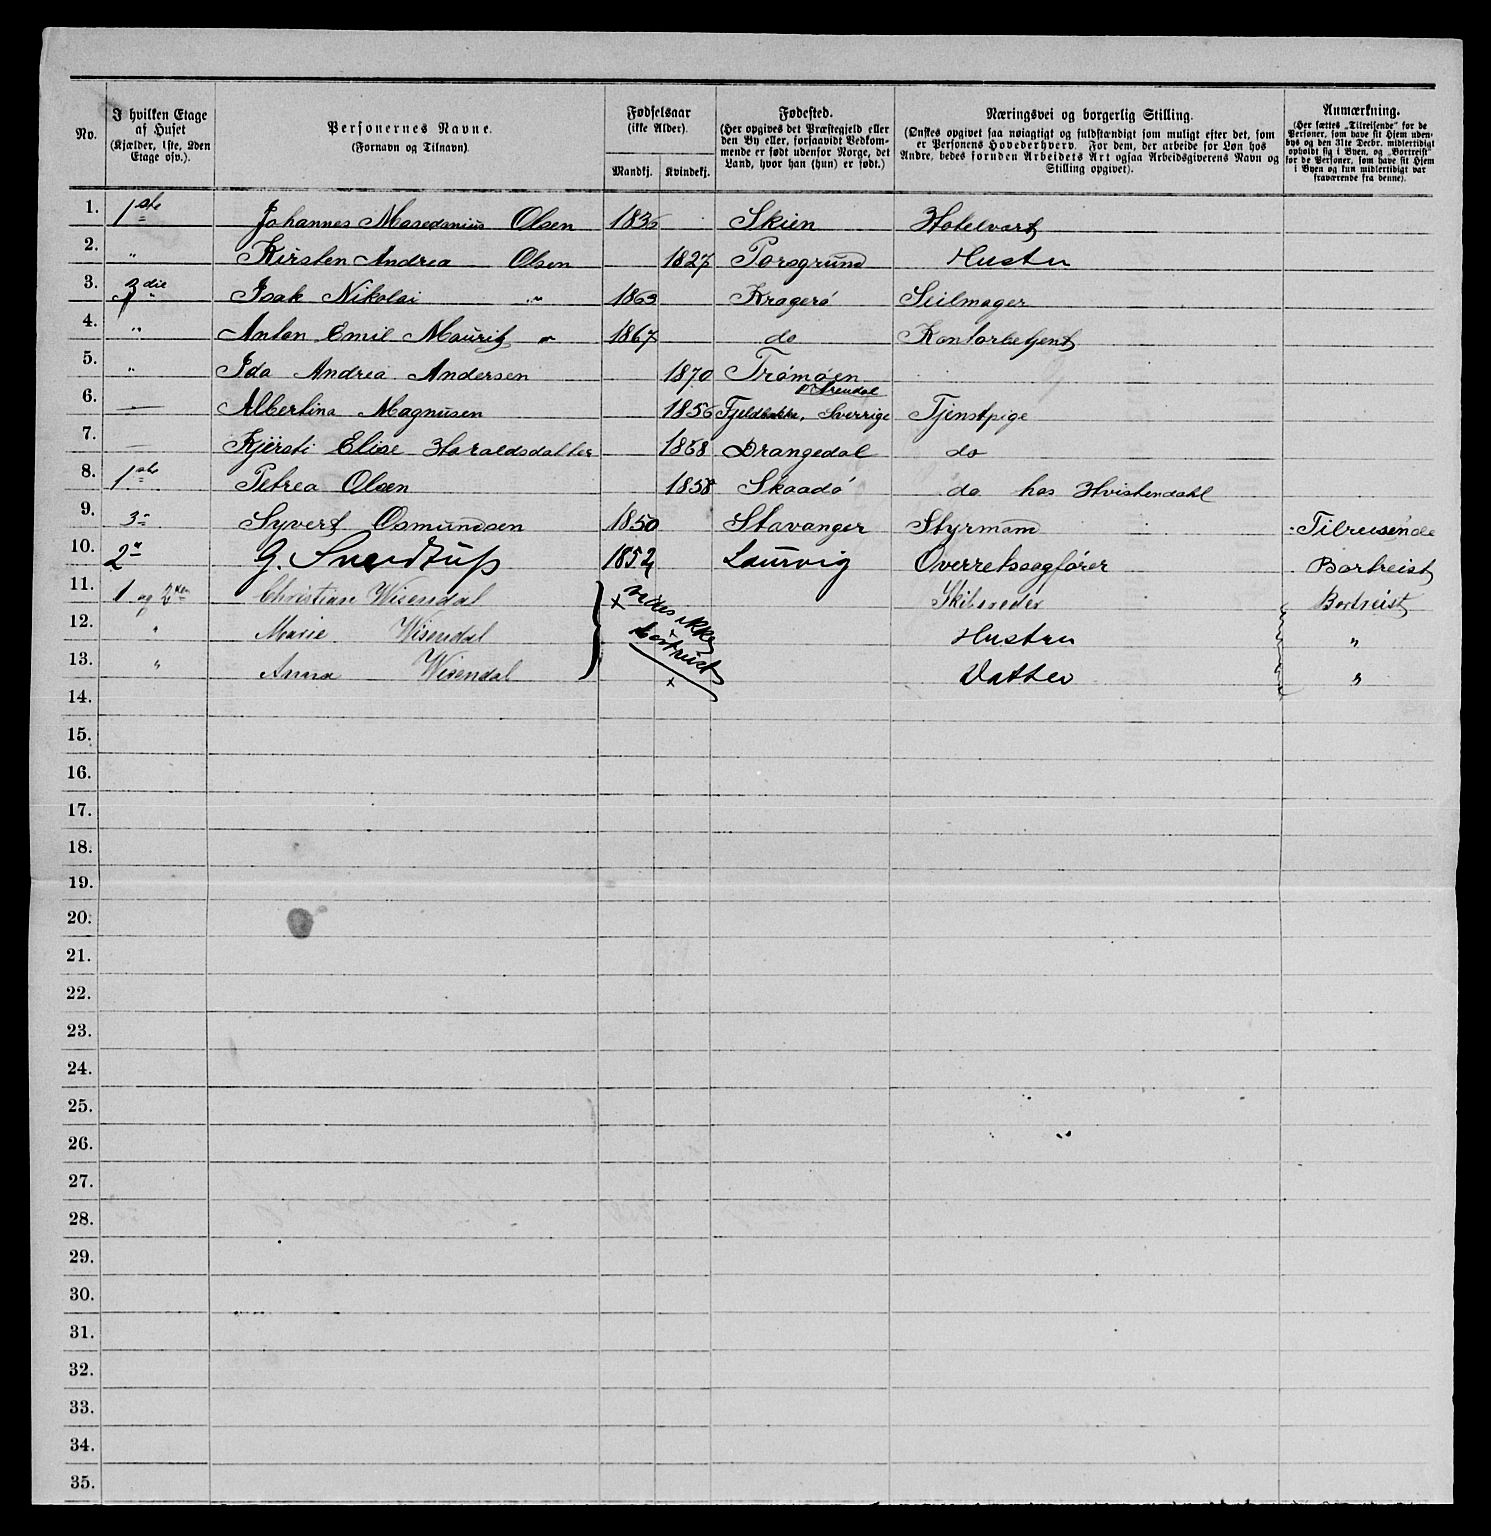 No. | I hvilken Etage af Huset (Kjælder, 1ste, 2den Etage osv.). | Personernes Navne. (Fornavn og Tilnavn). | Fødselsaar (ikke Alder). Mandkj. | Kvindekj. | Fødested. (Her opgives det Præstegjeld eller den By eller, forsaavidt Vedkommende er født udenfor Norge, det Land, hvor han (hun) er født.) | Næringsvei og borgerlig Stilling. (Ønskes opgivet saa nøiagtigt og fuldstændigt som muligt efter det, som er Personens Hovederhverv. For dem, der arbeide for Løn hos Andre, bedes foruden Arbeidets Art ogsaa Arbeidsgiverens Navn og Stilling opgivet). | Anmærkning. (Her sættes „Tilreisende" for de Personer, som have sit Hjem udenbys og den 31te Decbr. midlertidigt opholdt sig i Byen, og „Bortreist" for de Personer, som have sit Hjem i Byen og kun midlertidigt var fraværende fra denne).
1. 1ste Johannes Olsen 1836 Skien Hotelvært
2. " Kirsten Andrea Olsen 1827 Porsgrund Hustru
3. 3die " Isak Nikolai " 1863 Kragerø Seilmager
4. " Anton Emil Mauritz " 1867 do Kontorbetjent
5. " Ida Andrea Andersen 1870 Tromøen
pr Arendal
6. — Albertina Magnusen 1856 Fjeldbakka, Sverrige Tjenstpige
7. — Kjersti Elise Haraldsdatter 1858 Drangedal do
8. 1ste Petrea Olsen 1858 Skaadø do hos Hvistendahl
9. 3" Syvert Osmundsen 1850 Stavanger Styrmand Tilreisende
10. 2" G. 1852 Laurvig Overretssagfører Bortreist
11. 1 og 2den Christian Wisendal × vedes ikke Skibsreder Bortreist
12. " Marie Wisendal bortreist Hustru "
13. " Anna Wisendal × Datter "
14.
15.
16.
17.
18.
19.
20.
21.
22.
23.
24.
25.
26.
27.
28.
29.
30.
31.
32.
33.
34.
35.